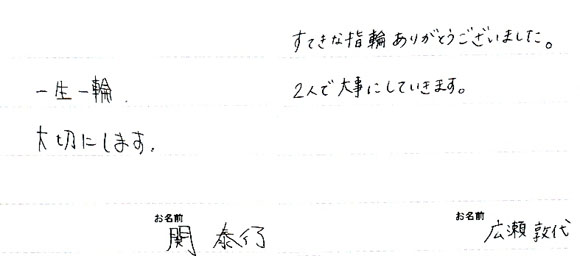 一生一輪.
大切にします.
お名前
関 泰行
すてきな指輪ありがとうございました。
2人で大事にしていきます。
お名前
広瀬敦代